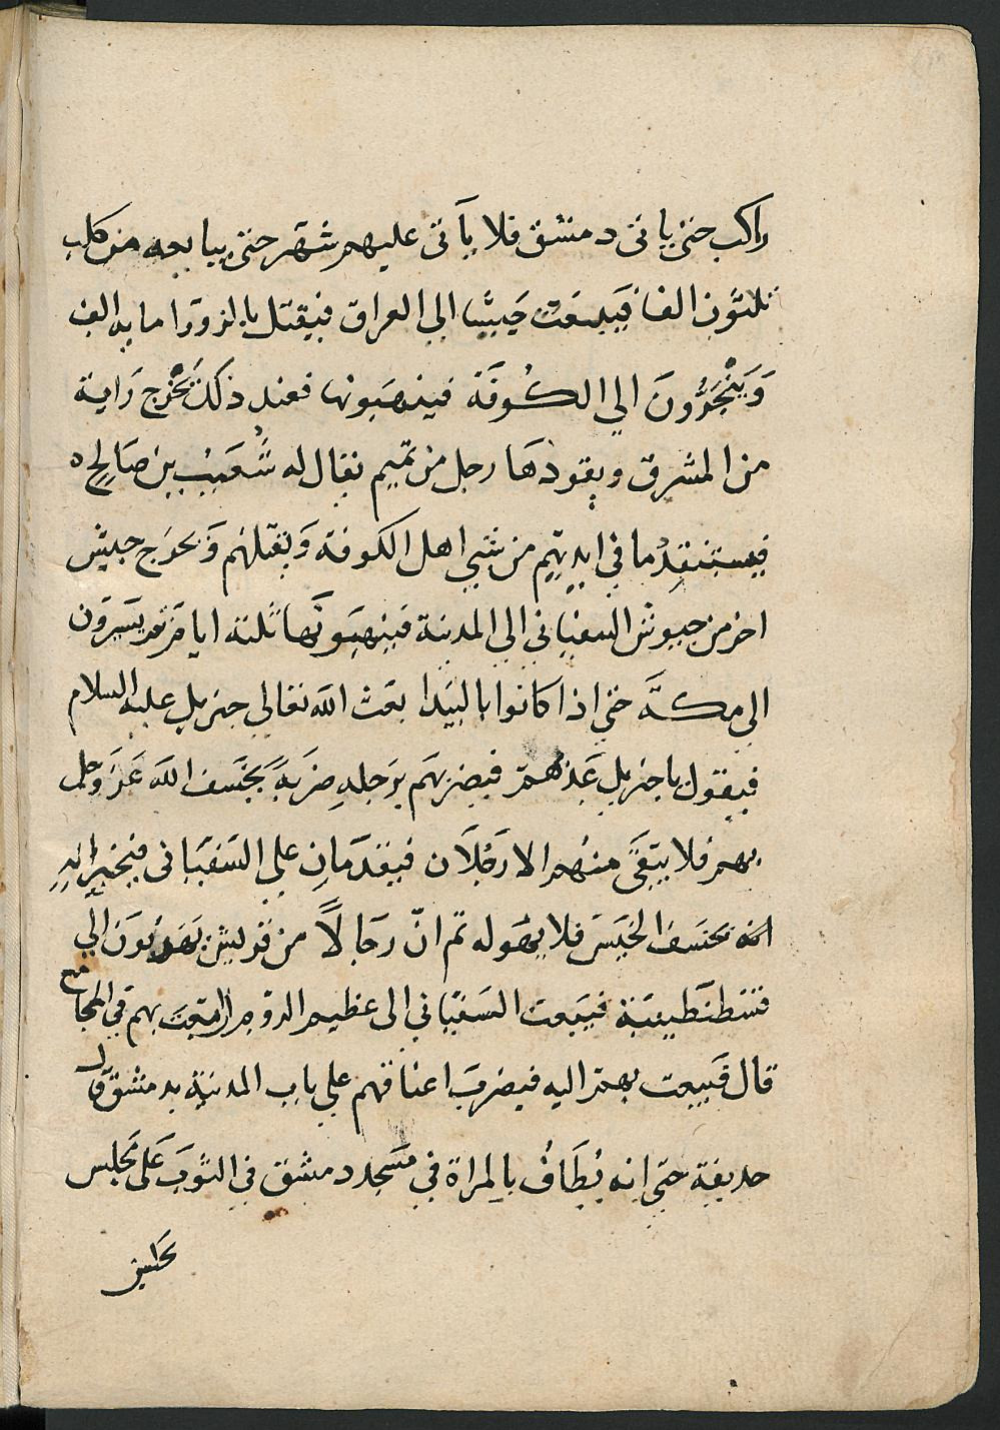 راكب حتى ياتى دمشق فلا يأتى عليهم شهر حتى يبايعه من كلب
ثلثون الفا فيبعث جيشا الي العراق فيقتل بالزورا ماية الف
وينجرون الي الكوفة فينهبونها فعند ذلك تخرج راية
من المشرق ويقودها رجل من تميم يقال له شعيب بن صالح
فيستنقذ ما في ايديهم من سبي اهل الكوفة ويقتلهم ويخرج جيش
اخر من جيوش السفياني الي المدينة فينهبونها ثلثة ايام ثم يسيرون
الي مكة حتي اذا كانوا بالبيدا بعث الله تعالي جبريل عليه السلام
فيقول يا جبريل عذبهم فيضربهم برجله ضربة يخسف الله عز وجل
بهم فلا يبقى منهم الا رجلان فيقدمان علي السفياني فيخبرانه
خسف الجيش فلا يهوله ثم ان رجالا من قريش يهربون الي
قسطنطينية فيبعث السفياني الى عظيم الروم ان ابعث بهم في المجامع
قال فيبعث بهم اليه فيضرب اعناقهم علي باب المدينة بدمشق قال
حذيفة حتي انه يطاف بالمراة في مسجد دمشق في الثوب على مجلس